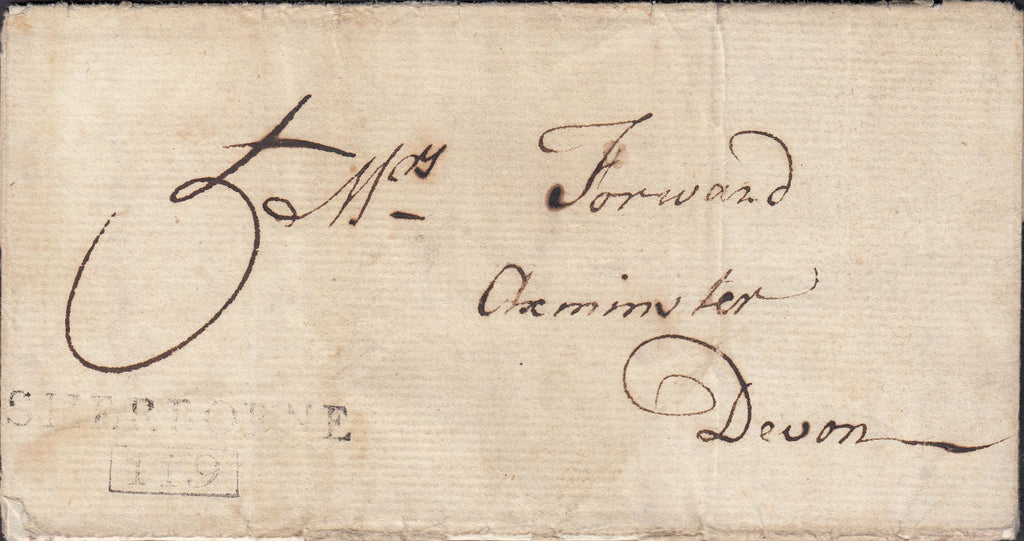 5
Mrs Forward
Axminster
Devon
SHERBORNE
119